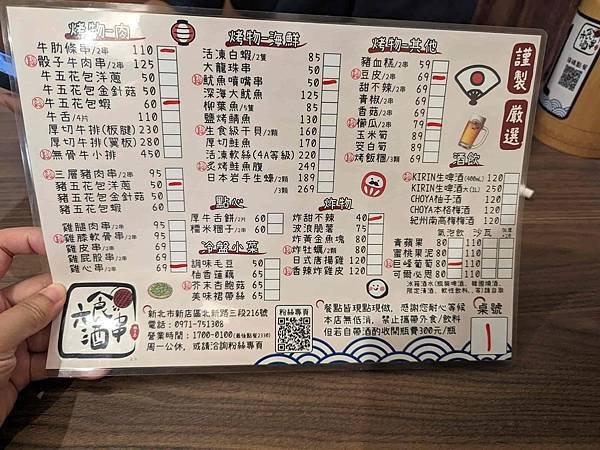 烤物-肉
牛肋條串/2串 110
骰子牛肉串/2串 125
牛五花包洋蔥 50
牛五花包金針菇 50
牛五花包蝦 60
牛舌/4片 110
厚切牛排(板腱) 230
厚切牛排(翼板) 280
無骨牛小排 450
三層豬肉串/2串 95
豬五花包洋蔥 50
豬五花包金針菇 50
豬五花包蝦 60
雞腿肉串/2串 95
雞膝軟骨串/2串 95
雞皮串/2串 60
雞屁股串/2串 60
雞心串/2串 60
烤物-海鮮
活凍白蝦/2隻 85
大龍珠串 50
魷魚嘴嘴串 50
深海大魷魚 125
柳葉魚/5隻 95
鹽烤鯖魚 130
生食級干貝/2顆 169
厚切鮭魚 169
活凍軟絲(4A等級) 220
炙烤鮭魚腹 249
日本岩手生蠔/3顆 269
點心
厚牛舌餅/2片 60
糯米糰子/2串 60
冷盤小菜
調味毛豆 50
柚香蓮藕 65
芥末杏鮑菇 65
美味裙帶絲 65
烤物-其他
豬血糕/2串 59
豆皮/2串 69
甜不辣/2串 59
青椒/2串 69
香菇/2串 69
櫛瓜/2串 79
玉米筍 69
茭白筍 69
烤飯糰/3顆 69
炸物
炸甜不辣 40
波浪脆薯 75
炸黃金魚塊 80
炸牡蠣/3顆 80
日式唐揚雞 120
香辣炸雞皮 120
謹製 嚴選
酒飲
KIRIN生啤酒(400mL) 120
KIRIN生啤酒大(1L) 250
CHOYA柚子酒 120
CHOYA本格梅酒 120
紀州南高梅梅酒 120
氣泡飲 沙瓦
青蘋果 80 110
蜜桃果泥 80 110
巨峰葡萄 80 110
可爾必思 80 110
食串
六酒
新北市新店區北新路三段216號
電話：0971-751308
營業時間：1700-0100(最後點餐2330)
周一公休，或請洽詢粉絲專頁
粉絲專頁
餐點皆現點現做，感謝您耐心等候
本店無低消，禁止攜帶外食/飲料
但若自帶酒酌收開瓶費300元/瓶
桌號
1